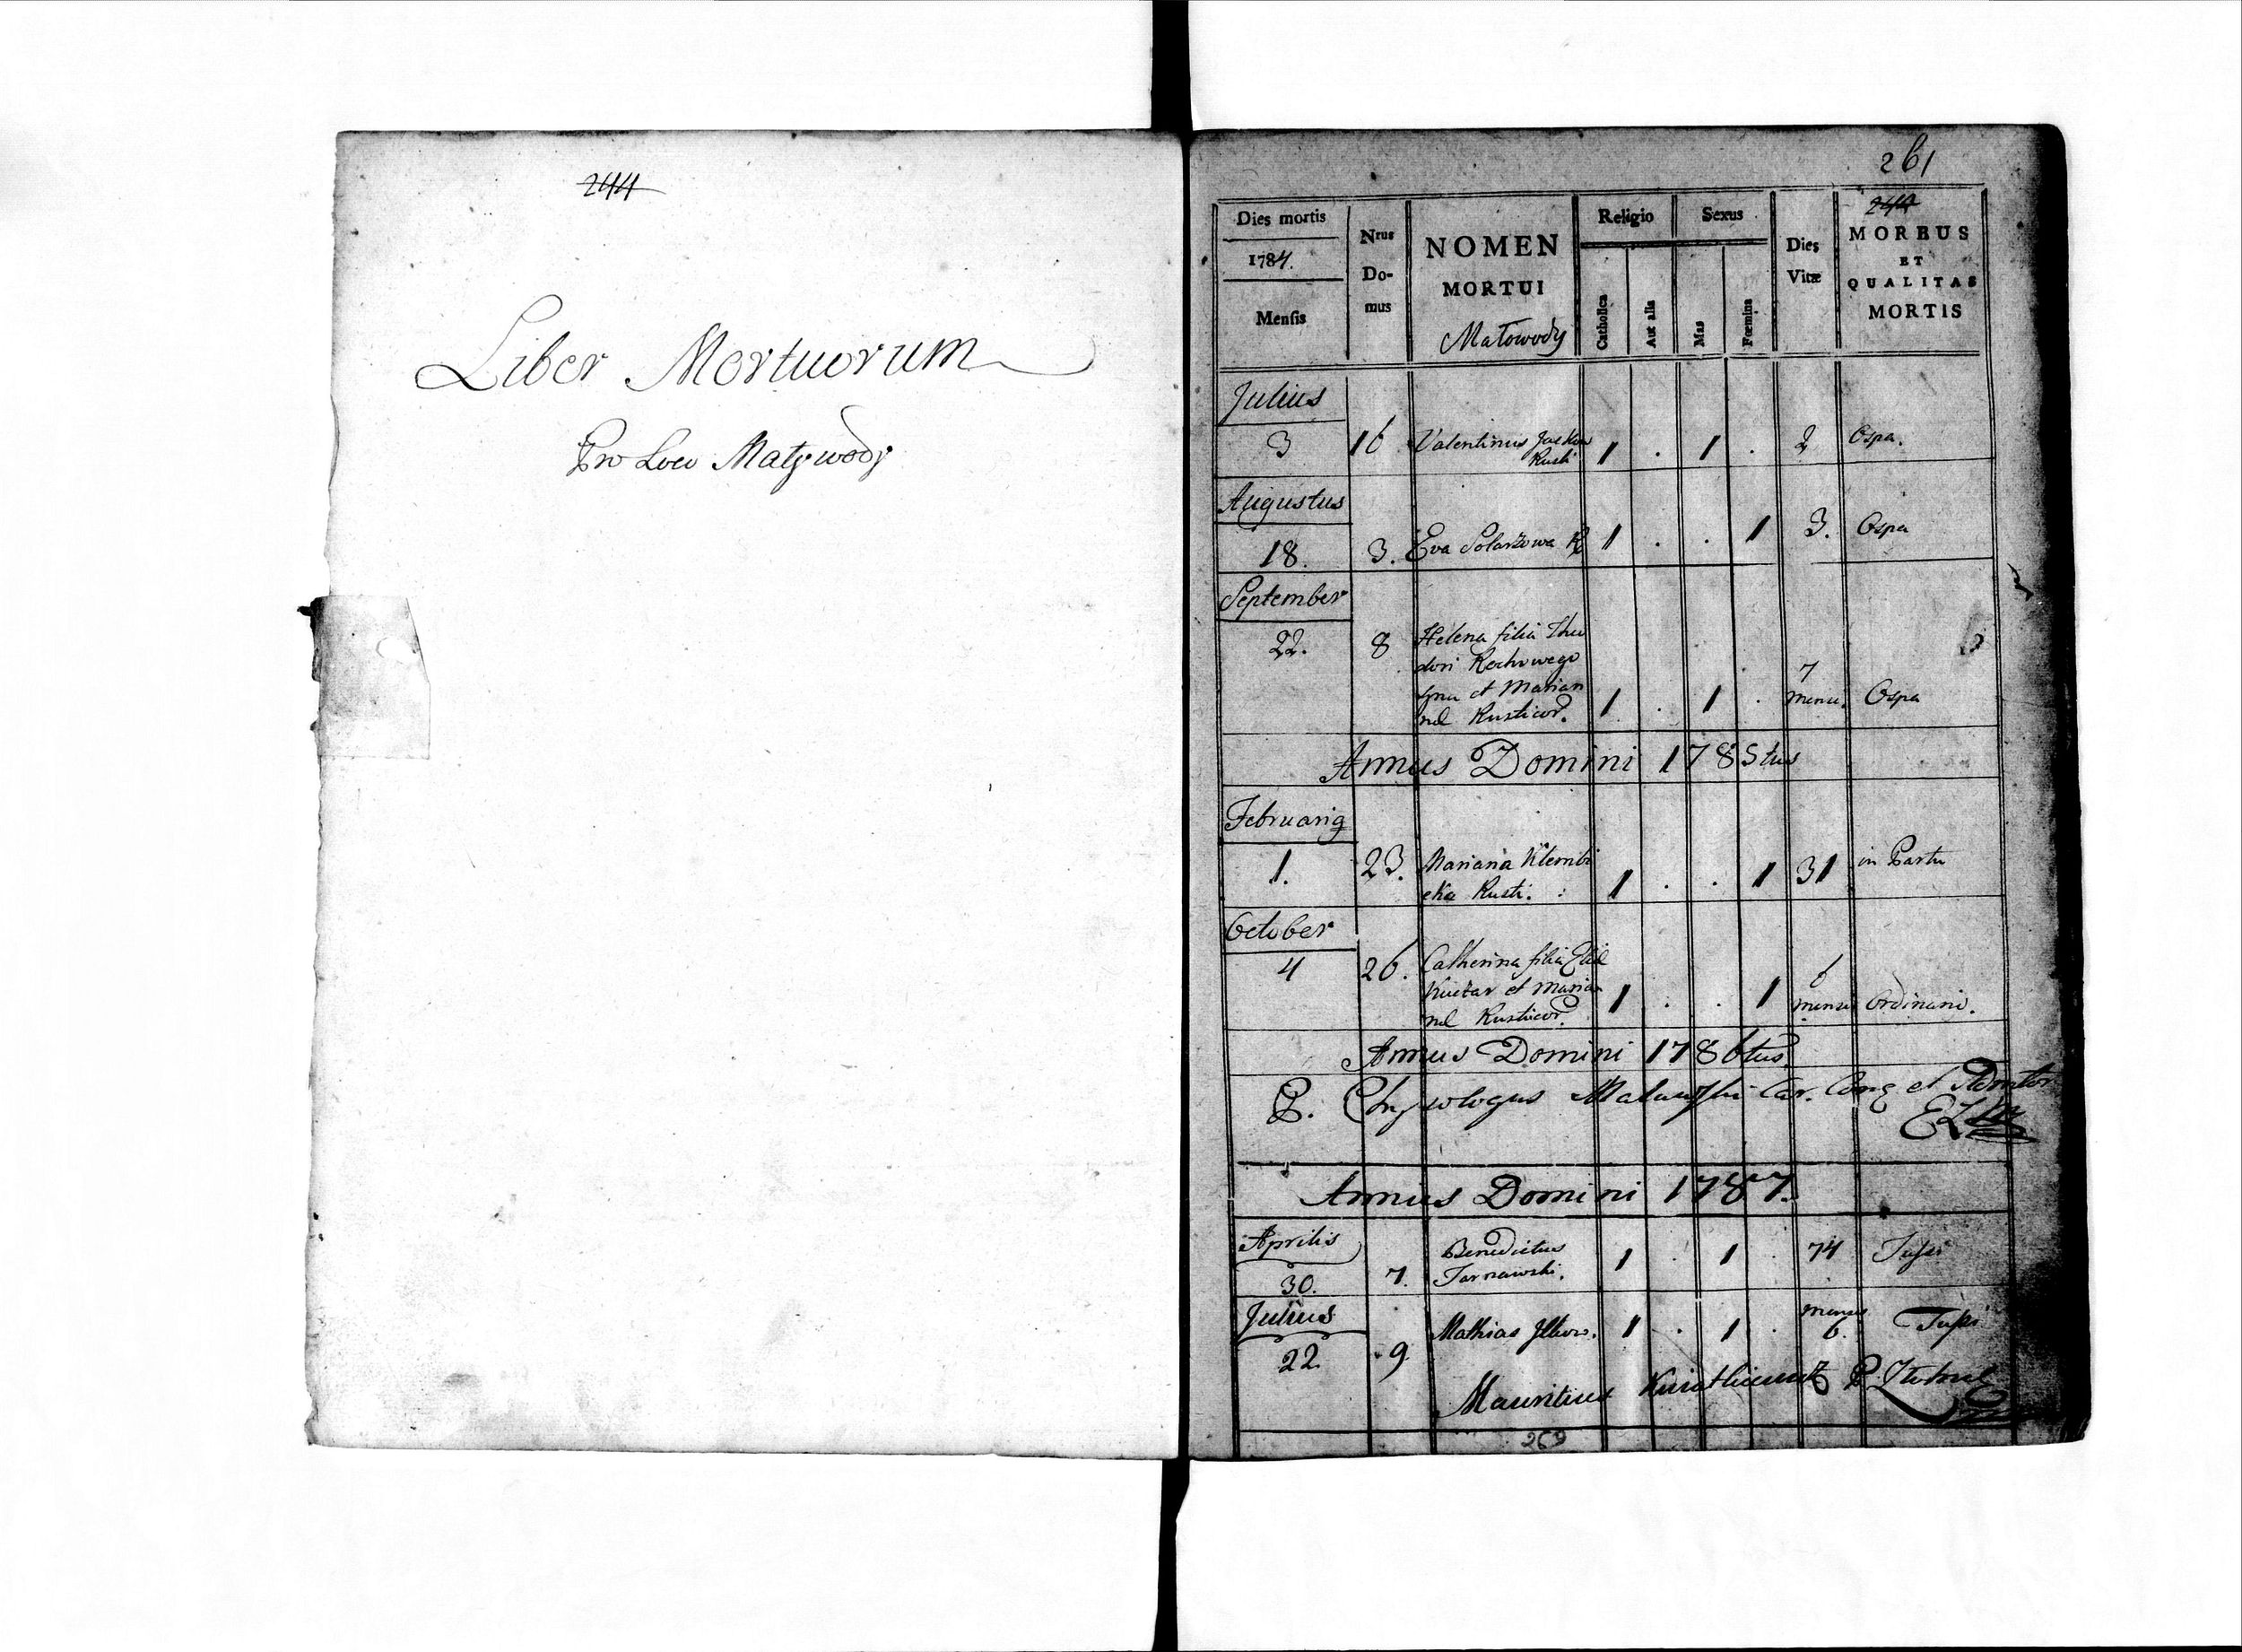 244
Liber Mortuorum
Pro Loco Matywody
261
Dies mortis
1784.
Mensis
Nrus
Do-
mus
NOMEN
MORTUI
Małowody
Religio
Catholica
Aut alia
Sexus
Mas
Fœmina
Dies
Vitæ
244
MORBUS
ET
QUALITAS
MORTIS
Julius
3 16 Valentinus 1 . 1 . 2 Ospa.
Rusti
Augustus
18. 3. Eva Solarżowa R 1 . . 1 3. Ospa
September
22. 8 Helena filia Theo
dori Rochowego
et Marian
næ Rusticor. 1 . 1 . 7 mens. Ospa
Annus Domini 1785tus
Februariq
1. 23. Mariana Klembi
cka Rusti. : 1 . . 1 31 in Partu
October
4 26. Catherina filia Eliæ
et Maria
næ Rusticor. 1 . . 1 6 mensis Ordinario.
Annus Domini 1786tus
P. Chrysologus Cong et Admtor
Annus Domini 1787.
Aprilis
30. 7. Benedictus
Tarnawski. 1 . 1 . 74 Tussi
Julius
22. 9. Mathias 1 . 1 . mens
6. Tussi
Mauritius
269